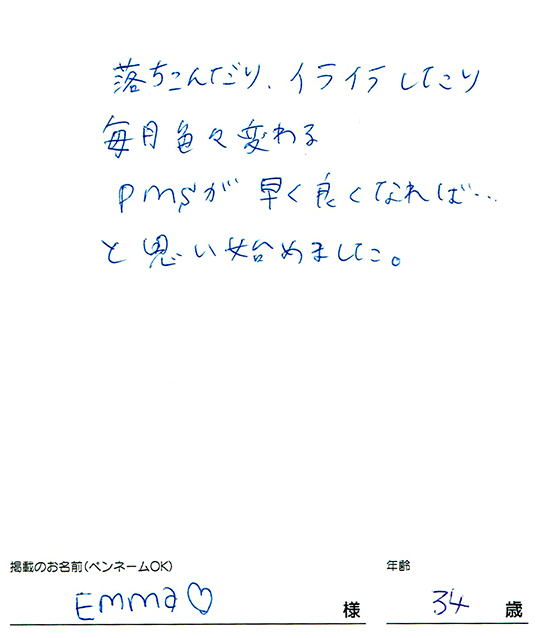 落ちこんだり、イライラしたり
毎月色々変わる
PMSが早く良くなれば…
と思い始めました。
掲載のお名前(ペンネームOK)
年齢
Emma♡ 様
34 歳